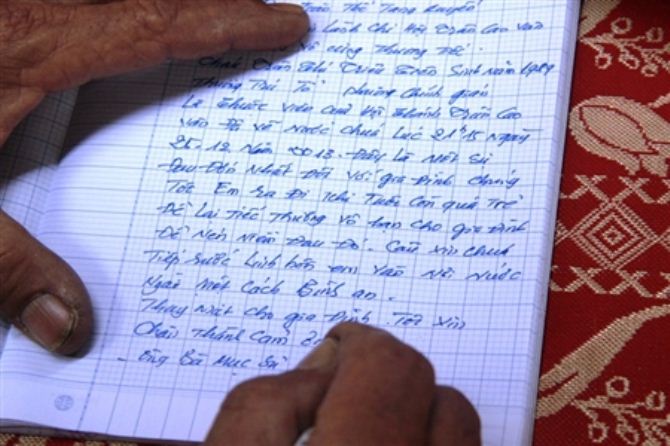 Toàn Thể Tang quyến
Lãnh Chi Hội Trần Cao Vân
Vô cùng Thương Tiếc
Cháu Trần Thị Diệu Sinh Năm 1989
Thường Trú Tổ phường Chính gián
Là Thuộc Viên của Hội Thánh Trần Cao
Vân Đã Về Nước Chúa Lúc 21h15 Ngày
25.12 Năm 2013. Đây Là Một Sự
Đau Đớn Nhất Đối Với gia Đình Chúng
Tôi Em Ra Đi Khi Tuổi Còn quá Trẻ
Để Lại Tiếc Thương Vô hạn cho gia Đình
Để Nén Niềm Đau Đó. Cầu xin chúa
Tiếp Rước Linh hồn em Vào Nơi Nước
Ngài Một Cách Bình an.
Thay Mặt cho gia Đình. Tôi Xin
Chân Thành Cảm
- Ông Bà Mục Sư